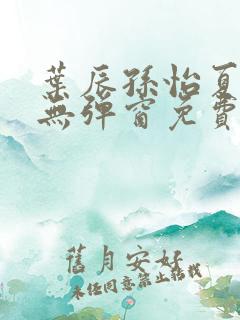 葉辰孫怡夏
無彈窗免費
舊月安好
未經同意禁止轉載